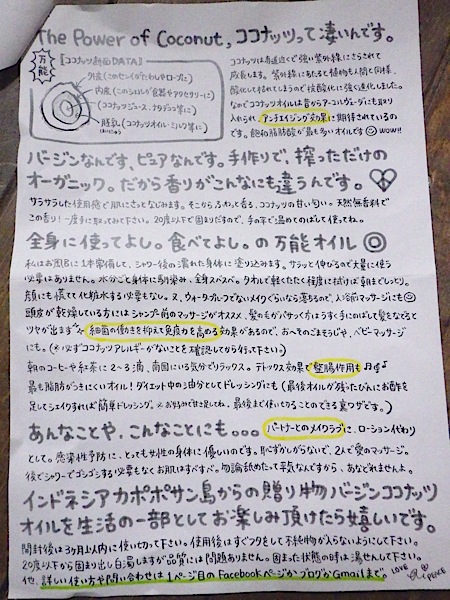 The Power of Coconut, ココナッツって凄いんです。
万能
【ココナッツ断面DATA】
外皮(このせんいがたわしやロープに)
内皮(このしりしりが食器やアクセサリーに)
(ココナッツジュース、ナタデココ等に)
胚乳(ココナッツオイル・ミルク等に)
ココナッツは赤道近くで強い紫外線にさらされて
成長します。紫外線にあたると植物も人間と同様、
酸化して枯れてしまうので、抗酸化に強く進化しました。
なのでココナッツオイルは昔からアーユルヴェーダにも取り
入れられ、アンチエイジング効果に期待されているので
です。飽和脂肪酸が最も多いオイルです wow!!
バージンなんです、ピュアなんです。手作りで、搾っただけの
オーガニック。だから香りがこんなにも違うんです。
サラサラした使用感で肌にさっとなじみます。そこからふわっと香る、ココナッツの甘い匂い。天然無香料で
この香り!一度手に取ってみて下さい。20度以下で固まりだすので、手の平で温めてのばして使ってね。
全身に使ってよし。食べてよし。の万能オイル
私はお風呂に1本常備して、シャワー後の濡れた身体に塗り込みます。サラッと伸びるので大量に使う
必要はありません。水分ごと身体に馴染み、全身スベスベ。タオルで軽くたたく程度に拭けば朝までしっとり。
顔にも慌てて化粧水する必要もなし。又、ウォータープルーフでないメイクぐらいなら落ちるので、入浴前マッサージにも
頭皮が乾燥している方にはシャンプー前のマッサージがオススメ。髪の毛がパサつく方はうすく手にのばして髪もなどると
ツヤが出ます 細菌の働きを抑えて免疫力を高める効果があるので、おへそのごまそうじや、ベビーマッサージ
にも。(※必ずココナッツアレルギーがないことを確認してから行って下さい。)
朝のコーヒーや紅茶に2〜3滴、南国にいる気分でリラックス。デトックス効果で整腸作用も
最も脂肪がつきにくいオイル!ダイエット中の油分としてドレッシングにも(最後オイルが残ったびんにお酢を
足してシェイクすれば簡単ドレッシング。※お好みで甘さ足してね、最後まで使いきることのできる裏ワザです。)
あんなことや、こんなことにも... パートナーとのメイクラブに、ローション代わり
として。感染症予防に、とっても女性の身体に優しいのです。恥ずかしがらないで、2人で愛のマッサージ。
後でシャワーでゴシゴシする必要もなくお肌はすべすべ。勿論舐めたって平気なんですから、あなどれませんよ。
インドネシアカポポサン島からの贈り物バージンココナッツ
オイルを生活の一部としてお楽しみ頂けたら嬉しいです。
開封後は3ヶ月以内に使い切って下さい。使用後はすぐフタをして不純物が入らないようにして下さい。
20度以下から固まり出し白濁しますが品質には問題ありません。固まった状態の時は湯せんして下さい。
他、詳しい使い方や問い合わせは1ページ目のFacebookページかブログかGmailまで。 LOVE PEACE